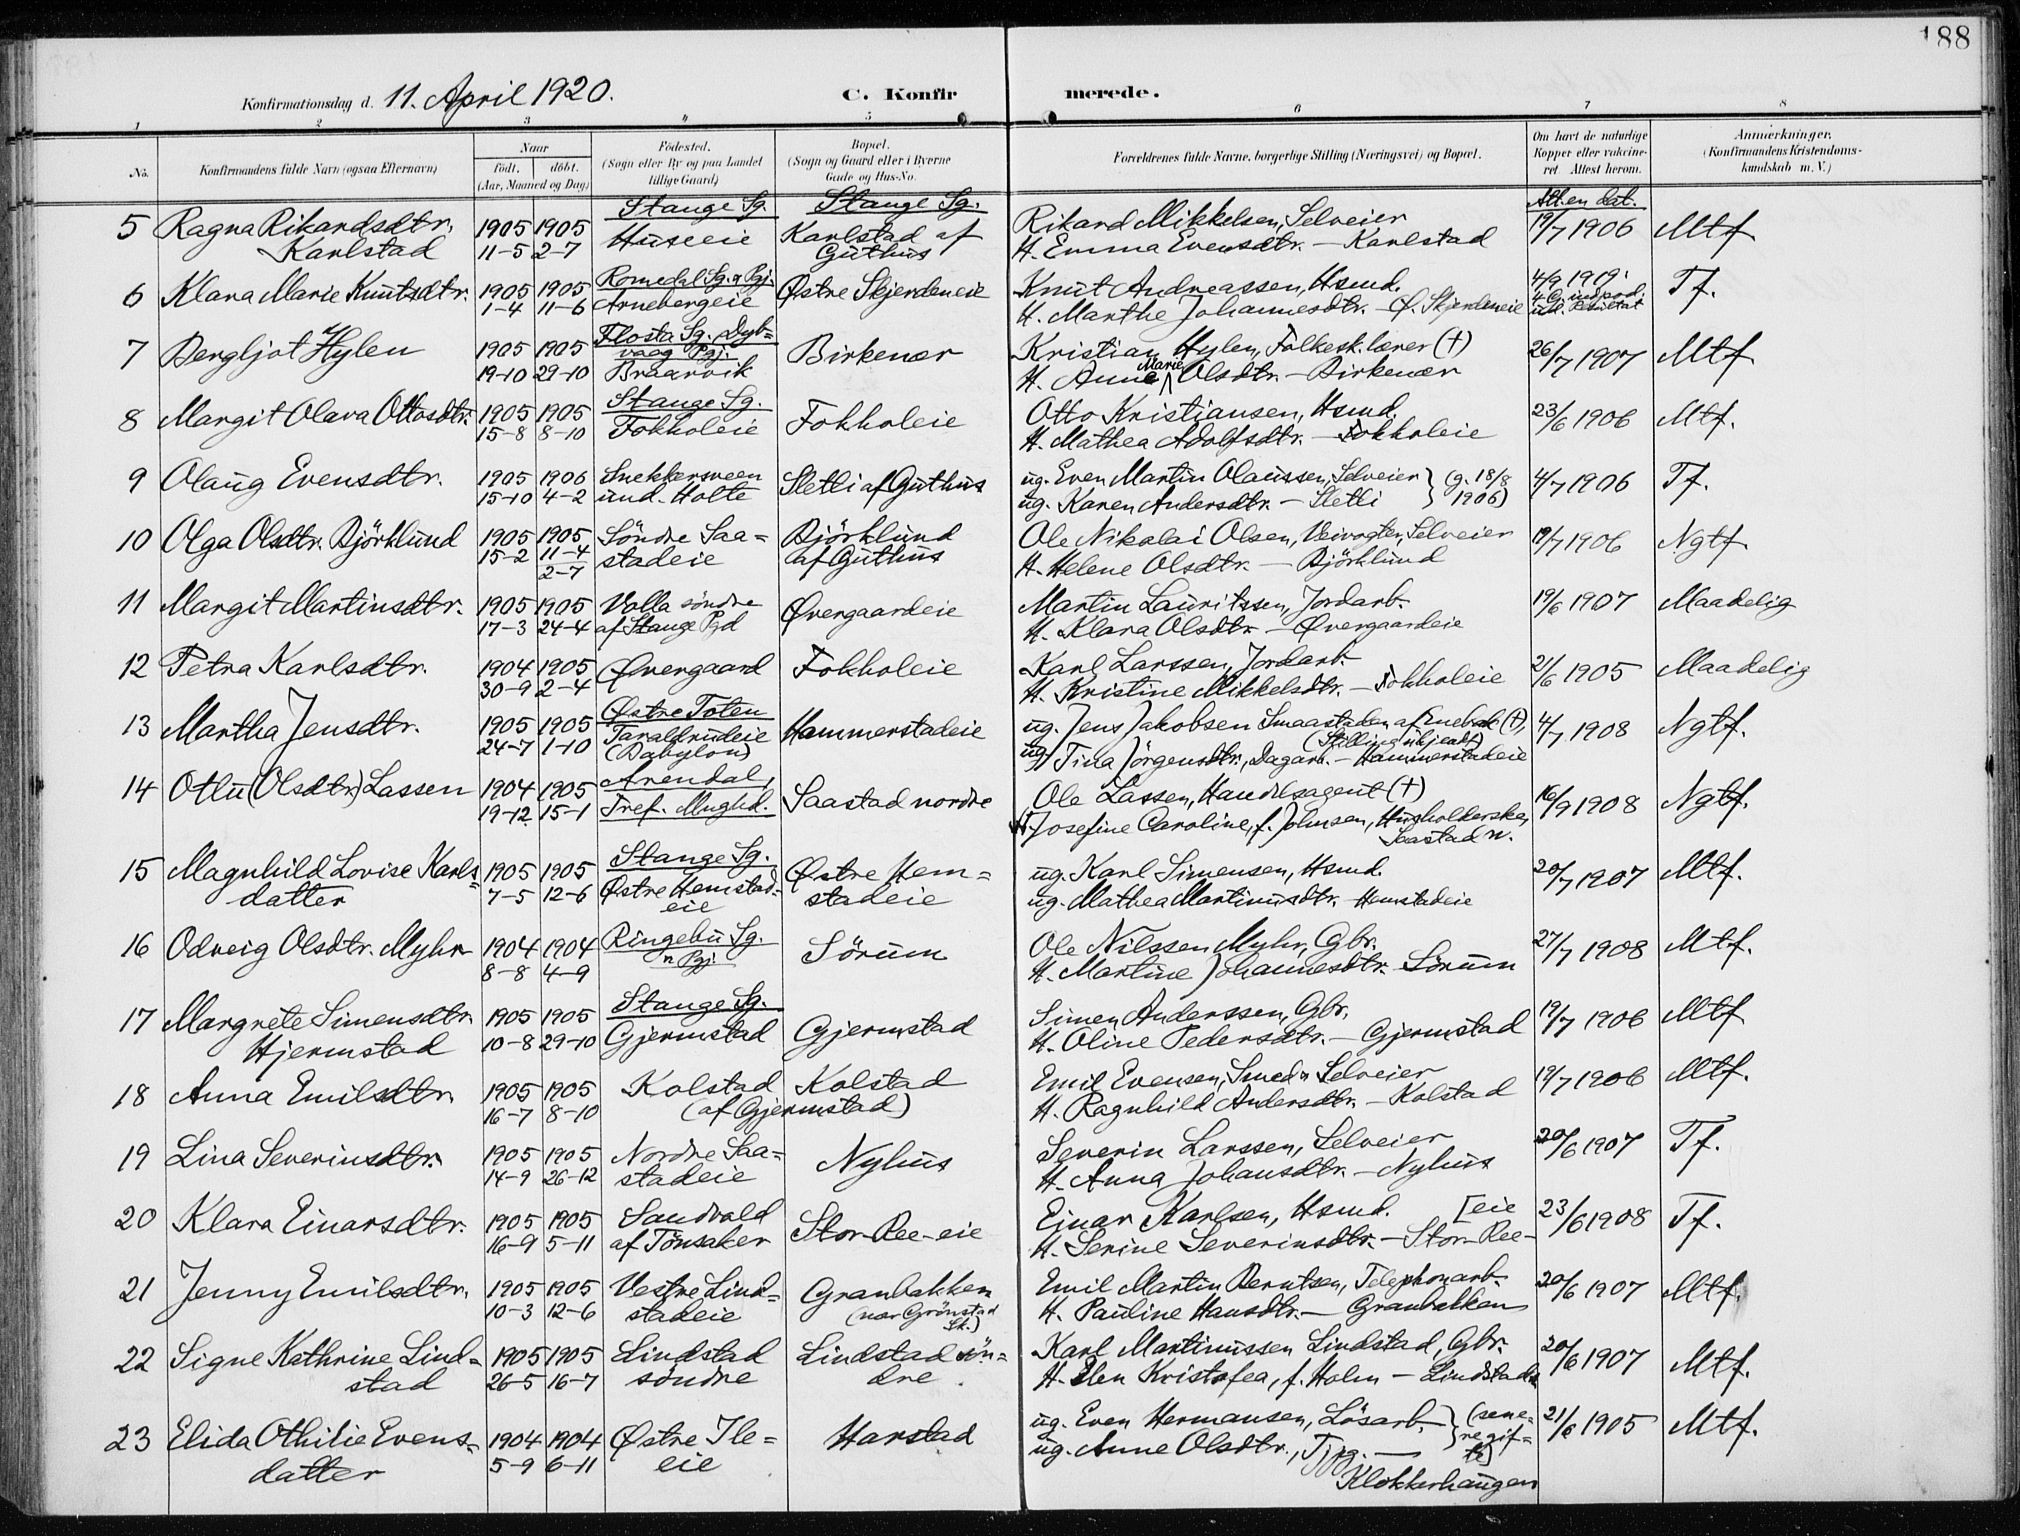 188
Konfirmationsdag d. 11. April 1920. C. Konfirmerede.
1 2 3 4 5 6 7 8
No. Konfirmandens fulde Navn (ogsaa Efternavn) Naar født. døbt. (Aar, Maaned og Dag) Fødested. (Sogn eller By og paa Landet tillige Gaard) Bopæl. (Sogn og Gaard eller i Byerne Gade og Hus-No. Forældrenes fulde Navne, borgerlige Stilling (Næringsvei) og Bopæl. Om havt de naturlige Kopper eller vaccineret Attest herom. Anmerkninger. (Konfirmandens Kristendomskundskab m. V.)
Stange Sg. Stange Sg. Att.en dat.
5 Ragna Rikardsdtr. 1905 1905 Huseeie Karlstad af Rikard Mikkelsen, Selveier 19/7 1906 Mtf
Karlstad 11-5 2-7 Guthus H. Emma Evensdtr. – Karlstad
6 Klara Marie Knutsdtr. 1905 1905 Romedal Sg. & Pgj. Østre Skjerdeneie Knut Andreassen, Hsmd. 4/9 1919. Tf.
1-4 11-6 Arnebergeie H. Marthe Johannesdtr. – Ø. Skjerdeneie 4 G. indpod. ud. Resultat
7 Bergljot Hylen 1905 1905 Flosta Sg. Dyb= Birkenær Kristian Hylen, Folkesk.lærer (†) 26/7 1907 Mtf
19-10 29-10 vaag Pgj. Braarvik H. Anne Marie Olsdtr. – Birkenær
8 Margit Olava Ottosdtr. 1905 1905 Stange Sg. Fokholeie Otto Kristiansen, Hsmd. 23/6 1906 Mtf.
15-8 8-10 Fokholeie H. Mathea Adolfsdtr. – Fokholeie
9 Olaug Evensdtr. 1905 1906 Snekkersveen Sletli af Guthus ug. Even Martin Olaussen, Selveier } (g. 18/8 4/7 1906 Tf.
15-10 4-2 und. Holte ug. Karen Andersdtr. – Sletli 1906)
10 Olga Olsdtr. Björklund 1905 1905 Söndre Saa= Björklund Ole Nikolai Olsen, Veivogter, Selveier 19/7 1906 Ngtf
15-2 11-4 stadeie af Guthus H. Helene Olsdtr. – Björklund
2-7
11 Margit Martinsdtr. 1905 1905 Volla söndre Øvergaardeie Martin Lauritssen, Jordarb. 19/6 1907 Maadelig
17-3 24-4 af Stange Pgd H. Klara Olsdtr. – Øvergaardeie
12 Petra Karlsdtr. 1904 1905 Øvergaard Fokholeie Karl Larssen, Jordarb. 21/6 1905 Maadelig
30-9 2-4 H. Kristine Mikkelsdtr. – Fokholeie
13 Martha Jensdtr. 1905 1905 Østre Toten Hammerstadeie ug. Jens Jakobsen Smaastaden af Enebak (†), 4/7 1908 Ngtf.
24-7 1-10 Taraldrudeie (Stilling ukjendt)
(Babylon) ug. Tina Jörgensdtr., Dagarb. – Hammerstadeie
14 Otlu (Olsdtr.) Lassen 1904 1905 Arendal, Saastad nordre Ole Lassen, Handelsagent (†) 16/9 1908 Ngtf.
19-12 15-1 Tref. Mnghd. H. Josefine Caroline, f. Johnsen, Husholderske,
Saastad n.
15 Magnhild Lovise Karls= 1905 1905 Stange Sg. Østre Hem= ug. Karl Simensen, Hsmd. 20/7 1907 Mtf.
datter 7-5 12-6 Østre Hemstad= eie stadeie ug. Mathea Martinusdtr. – Hemstadeie
16 Odveig Olsdtr. Myhr 1904 1904 Ringebu Sg. Sörum Ole Nilssen Myhr, Gbr. 27/7 1908 Mtf.
8-8 4-9 " Pgj. H. Martine Johannesdtr. – Sörum
17 Margrete Simensdtr. 1905 1905 Stange Sg. Gjermstad Simen Anderssen, Gbr. 19/7 1906 Mtf
Hjermstad 10-8 29-10 Gjermstad H. Oline Pedersdtr. – Gjermstad
18 Anna Emilsdtr. 1905 1905 Kolstad Kolstad Emil Evensen, Smed & Selveier 19/7 1906 Mtf.
16-7 8-10 (af Gjermstad) H. Ragnhild Andersdtr. – Kolstad
19 Lina Severinsdtr. 1905 1905 Nordre Saa= Nyhus Severin Larssen, Selveier 20/6 1907 Tf.
14-9 26-12 stadeie H. Anna Johansdtr. – Nyhus
20 Klara Einarsdtr. 1905 1905 Sandvold Stor-Ree-eie Einar Karlsen, Hsmd. [eie 23/6 1908 Tf.
16-9 5-11 af Tönsaker H. Serine Severinsdtr. – Stor-Ree-
21 Jenny Emilsdtr. 1905 1905 Vestre Lind= Granbakken Emil Martin Berntsen, Telephonarb. 20/6 1907 Mtf.
10-3 12-6 stadeie (nær Grönstad Sk.) H. Pauline Hansdtr. – Granbakken
22 Signe Kathrine Lind= 1905 1905 Lindstad Lindstad sön= Karl Martinussen Lindstad, Gbr. 20/6 1907 Mtf.
stad 26-5 16-7 söndre dre. H. Elen Kristofea, f. Holm – Lindstad s.
23 Elida Othilie Evens= 1904 1904 Østre Ile= Harstad ug. Even Hermansen, Lösarb. } (sene= 21/6 1905 Mtf.
datter 5-9 6-11 eie ug. Anne Olsdtr., Tjpg. – re gif= te)
Klokkerhaugen